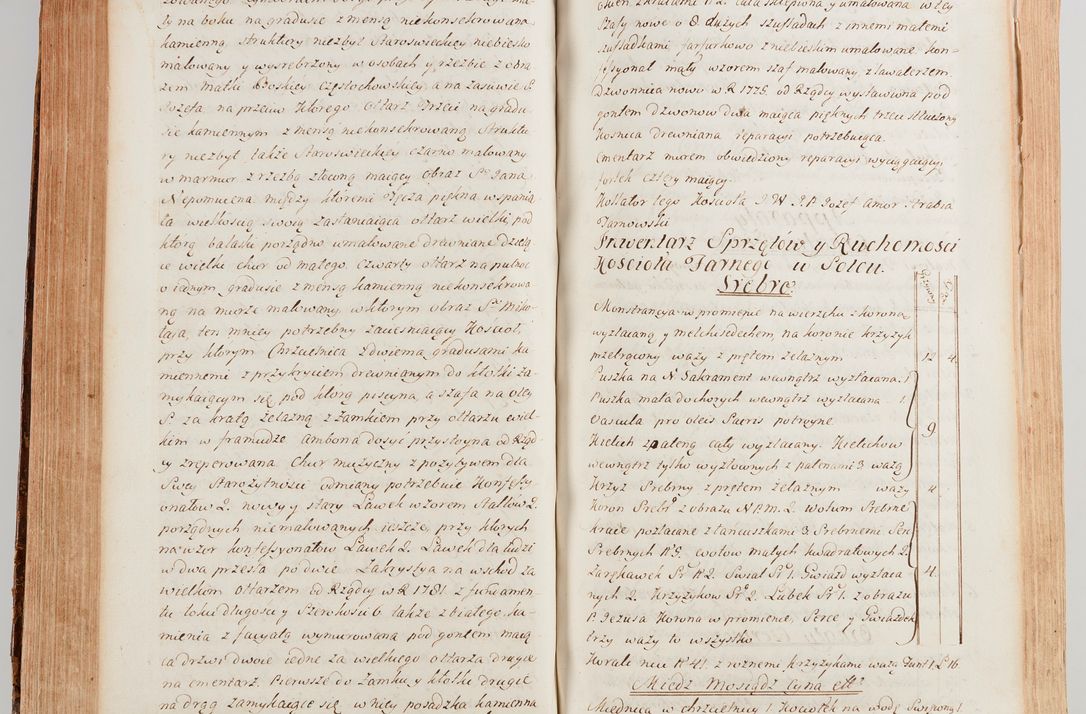 ty na boku na gradusie z mensą niekonsekrowaną
kamienną, struktury niezbyt staroswieckiey niebiesko
malowany y wysrebrzony w osobach y rzezbie z obra
zem Matki Boskiey Częstochowskiey, a na zasuwie S.
Jozefa, na przeciw ktorego ołtarz trzeci na gradu
sie kamiennym z mensą niekonsekrowaną struktu
ry niezbyt także staroswieckiey czarno malowany
w marmur z rzezbą złoconą maiący obraz Sgo Jana
Nepomucena, między ktoremi Tęcza piękna wspania
ła wielkoscią swoią zastawiaiąca ołtarz wielki, pod
ktorą balaski porządno umalowane drewniane dzielą
ce wielki chur od małego. czwarty ołtarz na pułnoc
o iednym gradusie z mensą kamienną niekonsekrowa
ną na murze malowany, w ktorym obraz Sgo Miko
łaja, ten mniey potrzebny zaciesniaiący Kosciół,
przy ktorym Chrzcielnica z dwiema gradusami ka
miennemi z przykryciem drewnianym do kłotki za
mykaiącym się, pod ktorą piscyna, a szafa na oley
S. za kratą żelazną z zamkiem przy ołtarzu wiel
kim w framudze. ambona dosyć przystoyna od Rząd
cy zreperowana. Chur muzyczny z pozytywem dla
swey starożytnosci odmiany potrzebuie Konfessy
onałow 2. nowy y stary Ławek wzorem Stallow 2.
porządnych niemalowanych ieszcze, przy ktorych
na wzor konfessyonałow Ławek 2. Ławek dla ludzi
w dwa przesła po dwie. Zakrystya na wschod za
wielkim ołtarzem od Rządcy w R. 1781 z fundamen
tu łokci długosci 7 szerokosci 6. także z białego ka
mienia z facyatą wymurowana pod gontem maią
ca drzwi dwoie iedne za wielkiego ołtarza drugie
na cmentarz. Pierwsze do zamku y kłotki drugie
na drąg zamykaiące się, w niey posadzka kamienna
Szafy nowe o 8 dużych szufladach z innemi małemi
szufladkami farfurkowo z niebieskim umalowane kon-
fessyonał mały wzorem szaf malowany z lawaterzem.
Dzwonnica nowo w R. 1775. od Rządcy wystawiona pod
gontem dzwonow dwa maiąca pięknych trzeci stłuczony
Kosnica drewniana reparacyi potrzebuiąca.
Cmentarz murem obwiedziony reparacyi wyciągaiący,
fortek cztery maiący.
Kollator tego Kościoła J. W. J. P. Jozef Amor Hrabia
Tarnowski
Inwentarz Sprzętów y Ruchomości
Koscioła Farnego w Solcu.
Srebro.
Grzywny Łóty
Monstrancya w promienie na wierzchu z koroną
wyzłacaną y melchisedechem, na koronie krzyżyk
przetrącony waży z prętem żelaznym 12 4.
Puszka na N Sakrament wewnątrz wyzłacana. 1
Puszka mała do chorych wewnątrz wyzłacana 1.
Vascula pro oleis Sacris potroyne
Kielich z pateną cały wyzłacany. Kielichow 9.
wewnątrz tylko wyzłoconych z patenami 3 ważą
Krzyż Srebrny z prętem żelaznym waży 4
Koron Srebr: z obrazu N.P.M. 2. wotum Srebrne
kraie pozłacane z łańcuszkami 3. Srebrnemi Serc
Srebrnych N 9. wotow małych kwadratowych 2.
Zarękawek Sr: N 2. Swiat Sr: 1. Gwiazd wyzłaca 4.
nych 2. Krzyżykow Sr: 2. Ząbek Sr: 1. z obrazu
P. Jezusa Korona w promienie, Serce y Gwiazdek
trzy waży to wszystko
Korale nici N 41. z roznemi krzyżykami ważą funt 1. ł. 16
Miedz Mosiądz Cyna ett:
Miednica w chrzcielnicy 1. Kociołek na wodę Święconą 1